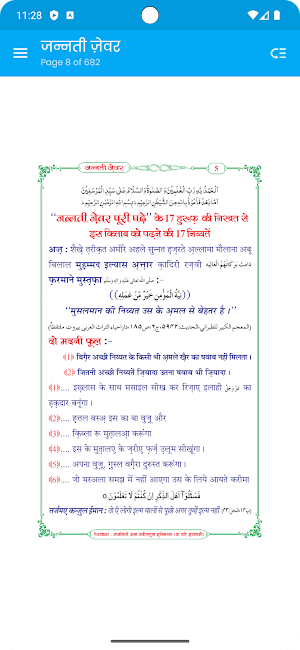 11:28
जन्नती ज़ेवर
Page 8 of 682
जन्नती ज़ेवर
5
اَلْحَمْدُ لِلّٰهِ رَبِّ الْعٰلَمِيْنَ وَ الصَّلٰوةُ وَ السَّلَامُ عَلٰى سَيِّدِ الْمُرْسَلِيْنَ
اَمَّا بَعْدُ فَاَعُوْذُ بِاللّٰهِ مِنَ الشَّيْطٰنِ الرَّجِيْمِ بِسْمِ اللّٰهِ الرَّحْمٰنِ الرَّحِيْمِ
"जन्नती ज़ेवर पूरी पढ़ें" के 17 हुरूफ़ की निस्बत से
इस किताब को पढ़ने की 17 निय्यतें
अज़ : शैख़े त़रीक़त अमीरे अहले सुन्नत ह़ज़रते अ़ल्लामा मौलाना अबू
बिलाल मुह़म्मद इल्यास अ़त्त़ार क़ादिरी रज़वी دَامَتْ بَرَكَاتُهُمُ الْعَالِيَه
फ़रमाने मुस्त़फ़ा صلى الله تعالى عليه واله وسلم :-
((نِيَّةُ الْمُؤْمِنِ خَيْرٌ مِّنْ عَمَلِهٖ))
"मुसलमान की निय्यत उस के अ़मल से बेहतर है।"
(المعجم الكبير للطبرانى، الحديث: ٥٩٤٢، ج٦، ص١٨٥، داراحياء التراث العربى بيروت)
दो मदनी फूल :-
﴾1﴿ बिग़ैर अच्छी निय्यत के किसी भी अ़मले ख़ैर का सवाब नहीं मिलता।
﴾2﴿ जितनी अच्छी निय्यतें ज़ियादा उतना सवाब भी ज़ियादा।
﴾1﴿.... इख़्लास के साथ मसाइल सीख कर रिज़ाए इलाही عَزَّوَجَلَّ का
ह़क़दार बनूंगा।
﴾2﴿.... ह़त्तल वस्अ़ इस का बा वुज़ू और
﴾3﴿.... क़िब्ला रू मुत़ालआ़ करूंगा
﴾4﴿.... इस के मुत़ालए़ के ज़रीए़ फ़र्ज़ उ़लूम सीखूंगा।
﴾5﴿.... अपना वुज़ू, ग़ुस्ल वग़ैरा दुरुस्त करूंगा।
﴾6﴿.... जो मस्अला समझ में नहीं आएगा उस के लिये आयते करीमा
فَسْـَٔلُوْۤا اَهْلَ الذِّكْرِ اِنْ كُنْتُمْ لَا تَعْلَمُوْنَ
तर्जमए कन्ज़ुल ईमान : तो ऐ लोगो इ़ल्म वालों से पूछो अगर तुम्हें इ़ल्म नहीं